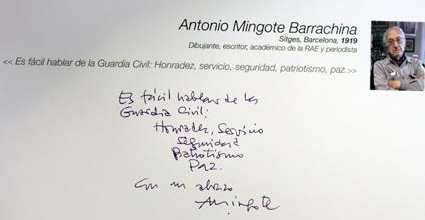 Antonio Mingote Barrachina
Sitges, Barcelona, 1919
Dibujante, escritor, académico de la RAE y periodista
<< Es fácil hablar de la Guardia Civil: Honradez, servicio, seguridad, patriotismo, paz >>
Es fácil hablar de la
Guardia Civil:
Honradez, Servicio
Seguridad
Patriotismo
Paz.
Con un abrazo
Mingote